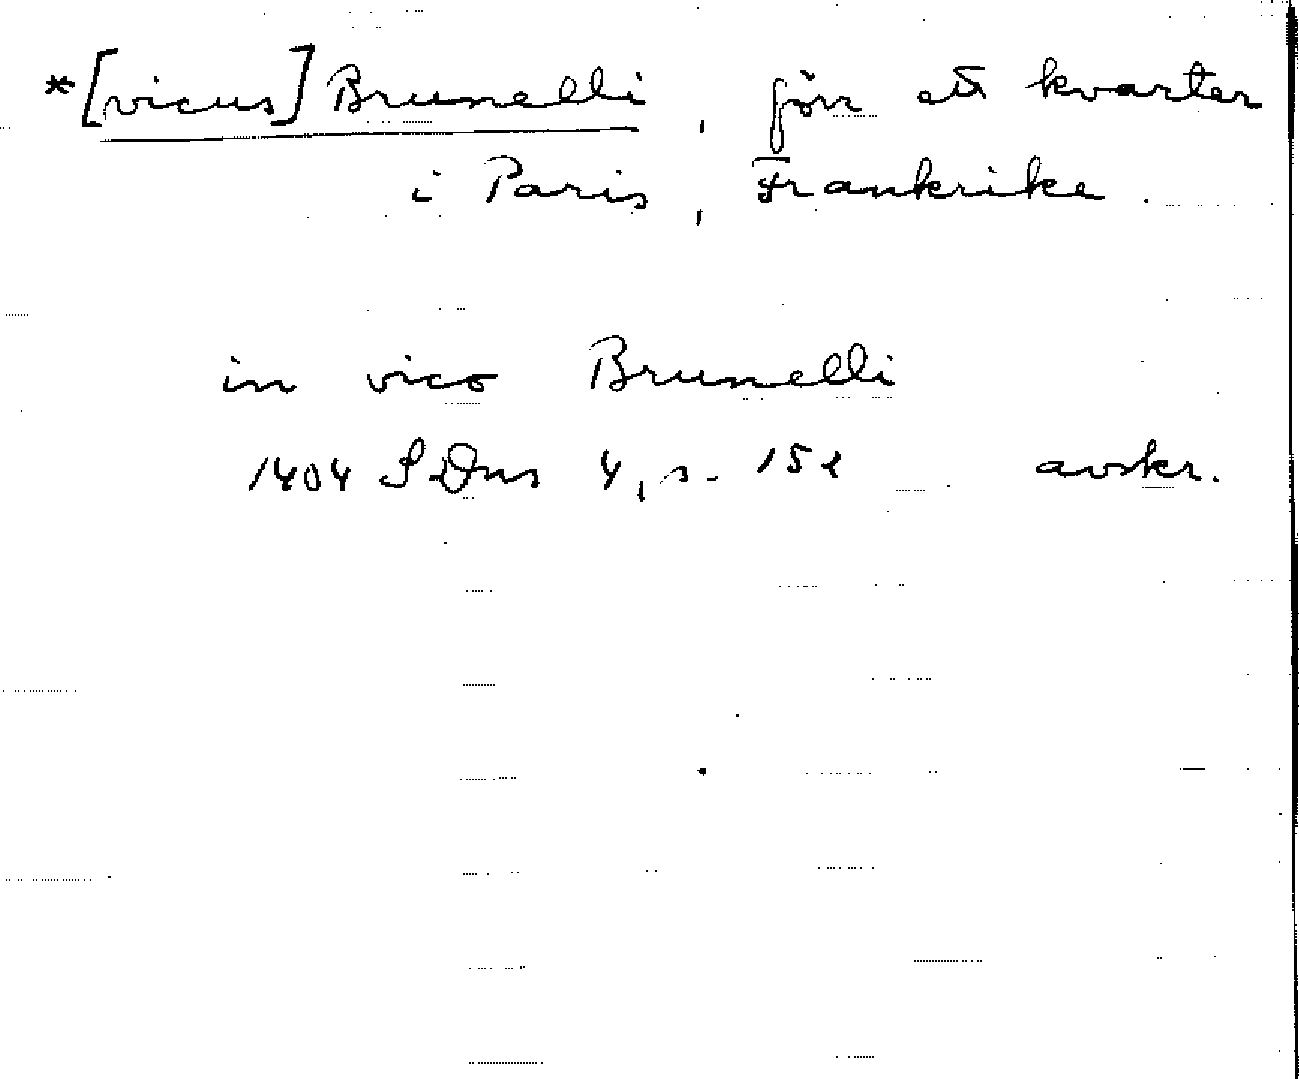 *[vicus] Brunelli, förr ett kvarter
i Paris, Frankrike.
in vico Brunelli
1404 SDns 4, s. 152 avskr.